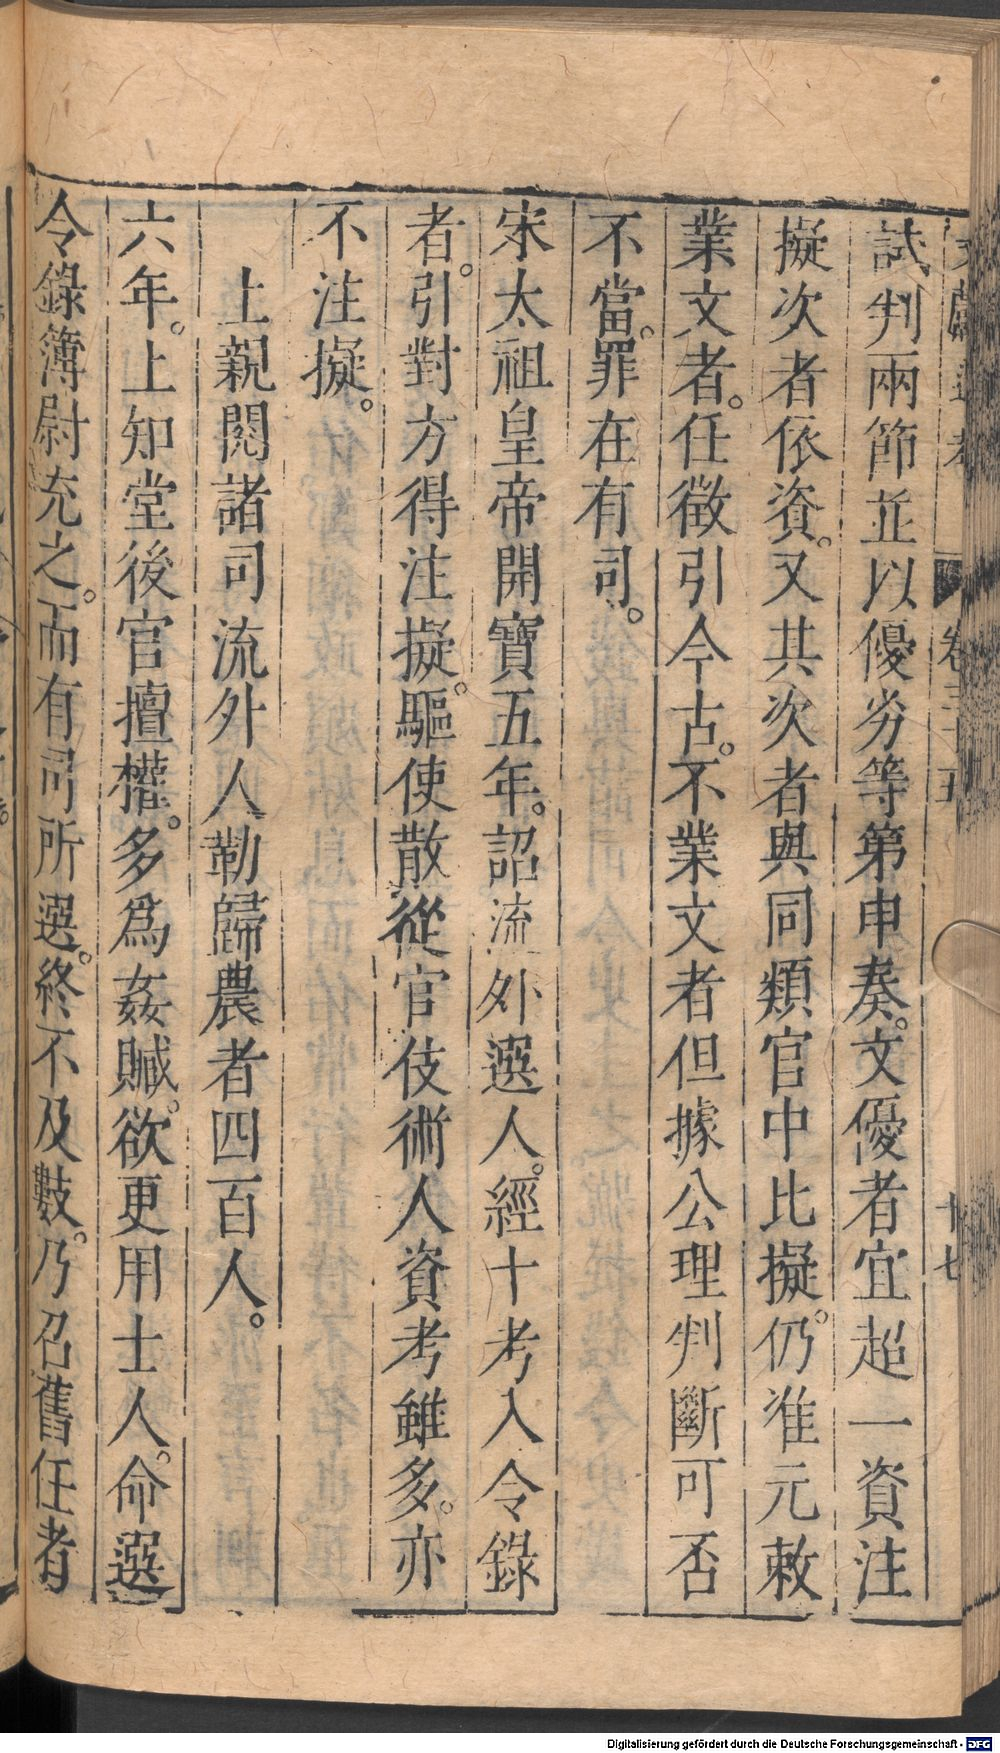 文獻通考 卷三十五 十七
試判兩節並以優劣等第申奏。文優者宜超一資注
擬次者依資。又其次者與同類官中比擬。仍准元敕
業文者。任徵引今古。不業文者但據公理判斷可否
不當。罪在有司。
宋太祖皇帝開寶五年。詔流外選人。經十考入令錄
者。引對方得注擬。驅使散從官伎術人資考雖多。亦
不注擬。
上親閱諸司流外人勒歸農者四百人。
六年。上知堂後官擅權。多爲姦贓。欲更用士人。命選
令錄簿尉充之。而有司所選。終不及數。乃召舊任者
Digitalisierung gefördert durch die Deutsche Forschungsgemeinschaft - DFG